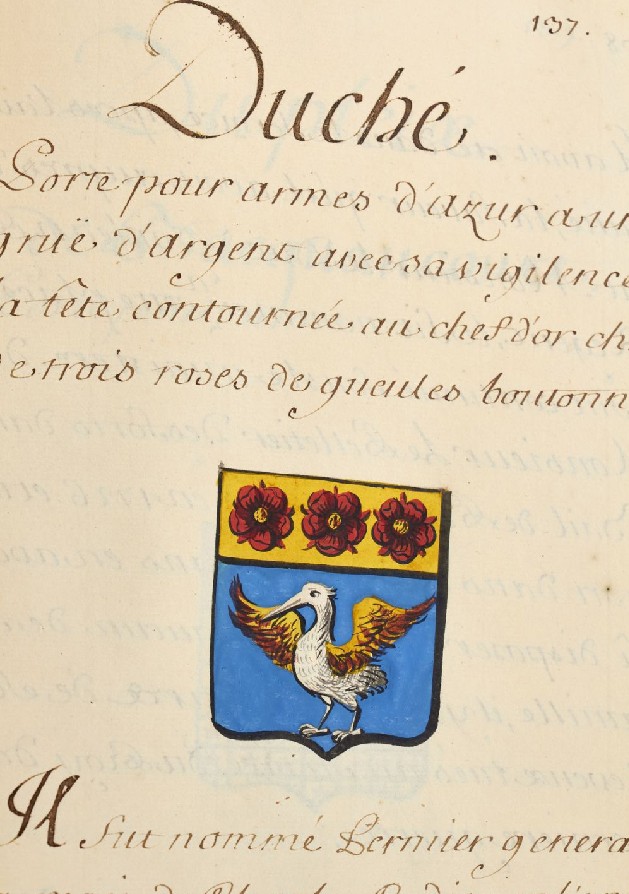 137.
Duché.
Porte pour armes d'azur a un
gruë d'argent avec sa vigilence
la tête contournée au chef d'or ch
de trois roses de gueules boutonn
Il fut nommé Fermier genera